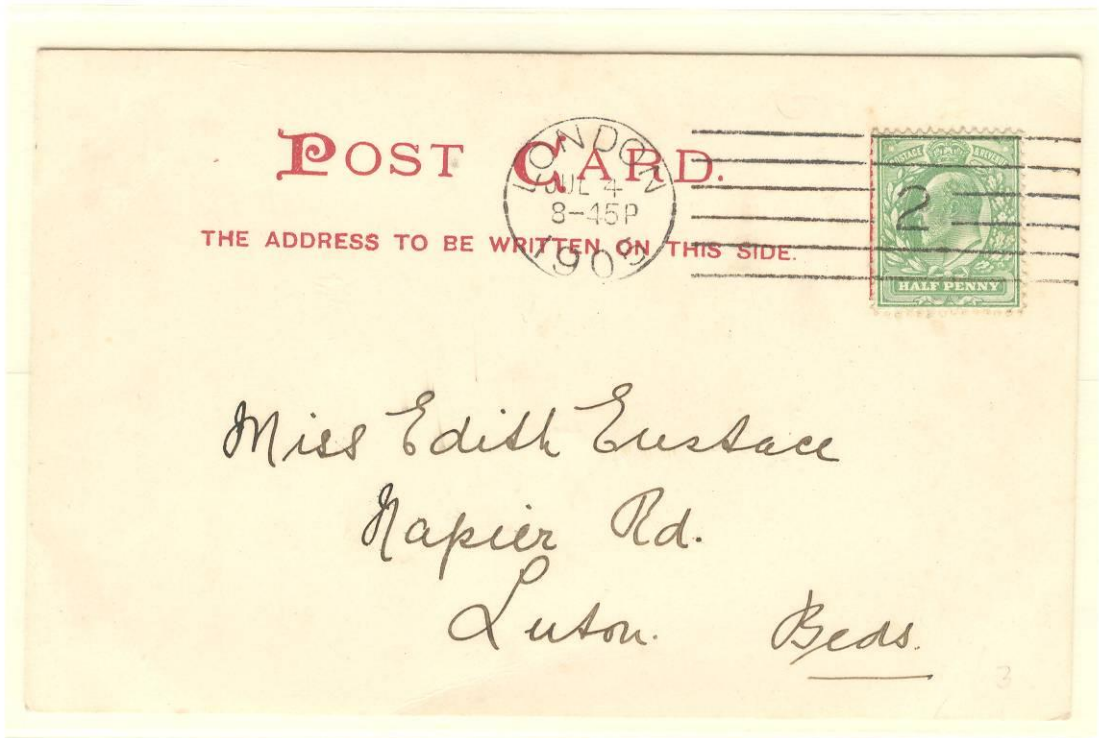 POST CARD.
THE ADDRESS TO BE WRITTEN ON THIS SIDE.
LONDON
JUL 4
8-45P
2
POSTAGE & REVENUE
HALF PENNY
Miss Edith Eustace
Napier Rd.
Luton.
Beds.
3